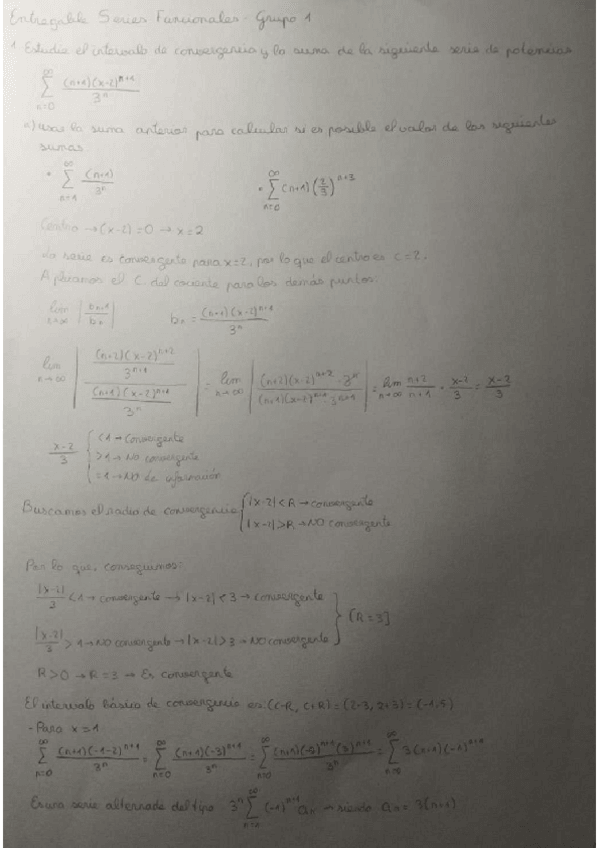 Entregable Series Funcionales - Grupo 1
1 Estudie el intervalo de convergencia y la suma de la siguiente serie de potencias
∑_{n=0}^{∞} (n+1)(x-2)^{n+1} / 3^n
a) usar la suma anterior para calcular si es posible el valor de las siguientes
sumas
• ∑_{n=1}^{∞} (n+1) / 3^n   • ∑_{n=0}^{∞} (n+1)(2/3)^{n+3}
Centro → (x-2)=0 → x=2
La serie es convergente para x=2, por lo que el centro es c=2.
Aplicamos el C. del cociente para los demás puntos:
lim_{n→∞} | b_{n+1} / b_n |   b_n = (n+1)(x-2)^{n+1} / 3^n
lim_{n→∞} | ((n+2)(x-2)^{n+2} / 3^{n+1}) / ((n+1)(x-2)^{n+1} / 3^n) | = lim_{n→∞} | (n+2)(x-2)^{n+2} · 3^n / (n+1)(x-2)^{n+1} · 3^{n+1} | = lim_{n→∞} n+2 / n+1 · x-2 / 3 = x-2 / 3
x-2 / 3 { <1 → Convergente
>1 → No convergente
=1 → NO da información
Buscamos el radio de convergencia { |x-2| < R → convergente
|x-1| > R → NO convergente
Por lo que, conseguimos:
|x-2| / 3 < 1 → convergente → |x-2| < 3 → convergente
|x-2| / 3 > 1 → NO convergente → |x-2| > 3 → NO convergente } [R=3]
R>0 → R=3 → Es convergente
El intervalo básico de convergencia es: (c-R, c+R) = (2-3, 2+3) = (-1,5)
- Para x=1
∑_{n=0}^{∞} (n+1)(-1-2)^{n+1} / 3^n = ∑_{n=0}^{∞} (n+1)(-3)^{n+1} / 3^n = ∑_{n=0}^{∞} (n+1)(-1)^{n+1}(3)^{n+1} / 3^n = ∑_{n=0}^{∞} 3(n+1)(-1)^{n+1}
Es una serie alternada del tipo ∑ (-1)^{n+1} a_n → siendo a_n = 3(n+1)